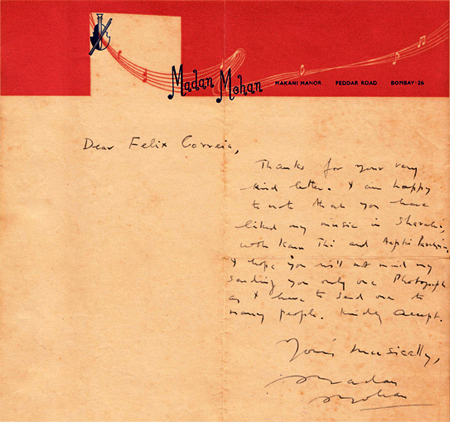 Madan Mohan MAKANI MANOR PEDDAR ROAD BOMBAY-26
Dear Felix Correia,
Thanks for your very
kind letter. I am happy
to note that you have
liked my music in Sharabi,
woh Kaun Thi and Aapki
I hope you will not mind my
sending you only one Photograph
as I have to send one to
many people. Kindly accept.
Yours Musically,
Madan
Mohan